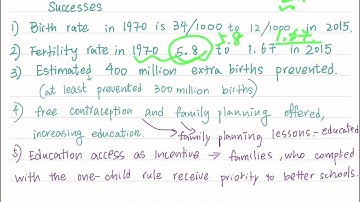 Successes
1) Birth rate in 1970 is 34/1000 to 12/1000 in 2015.
5.8 1.67
2) Fertility rate in 1970 5.8 to 1.67 in 2015
3) Estimated 400 million extra births prevented.
(at least prevented 300 million births)
4) free contraception and family planning offered,
increasing education. family planning lessons - educated
5) Education access as Incentive → families, who complied
with the one-child rule receive priority to better schools.